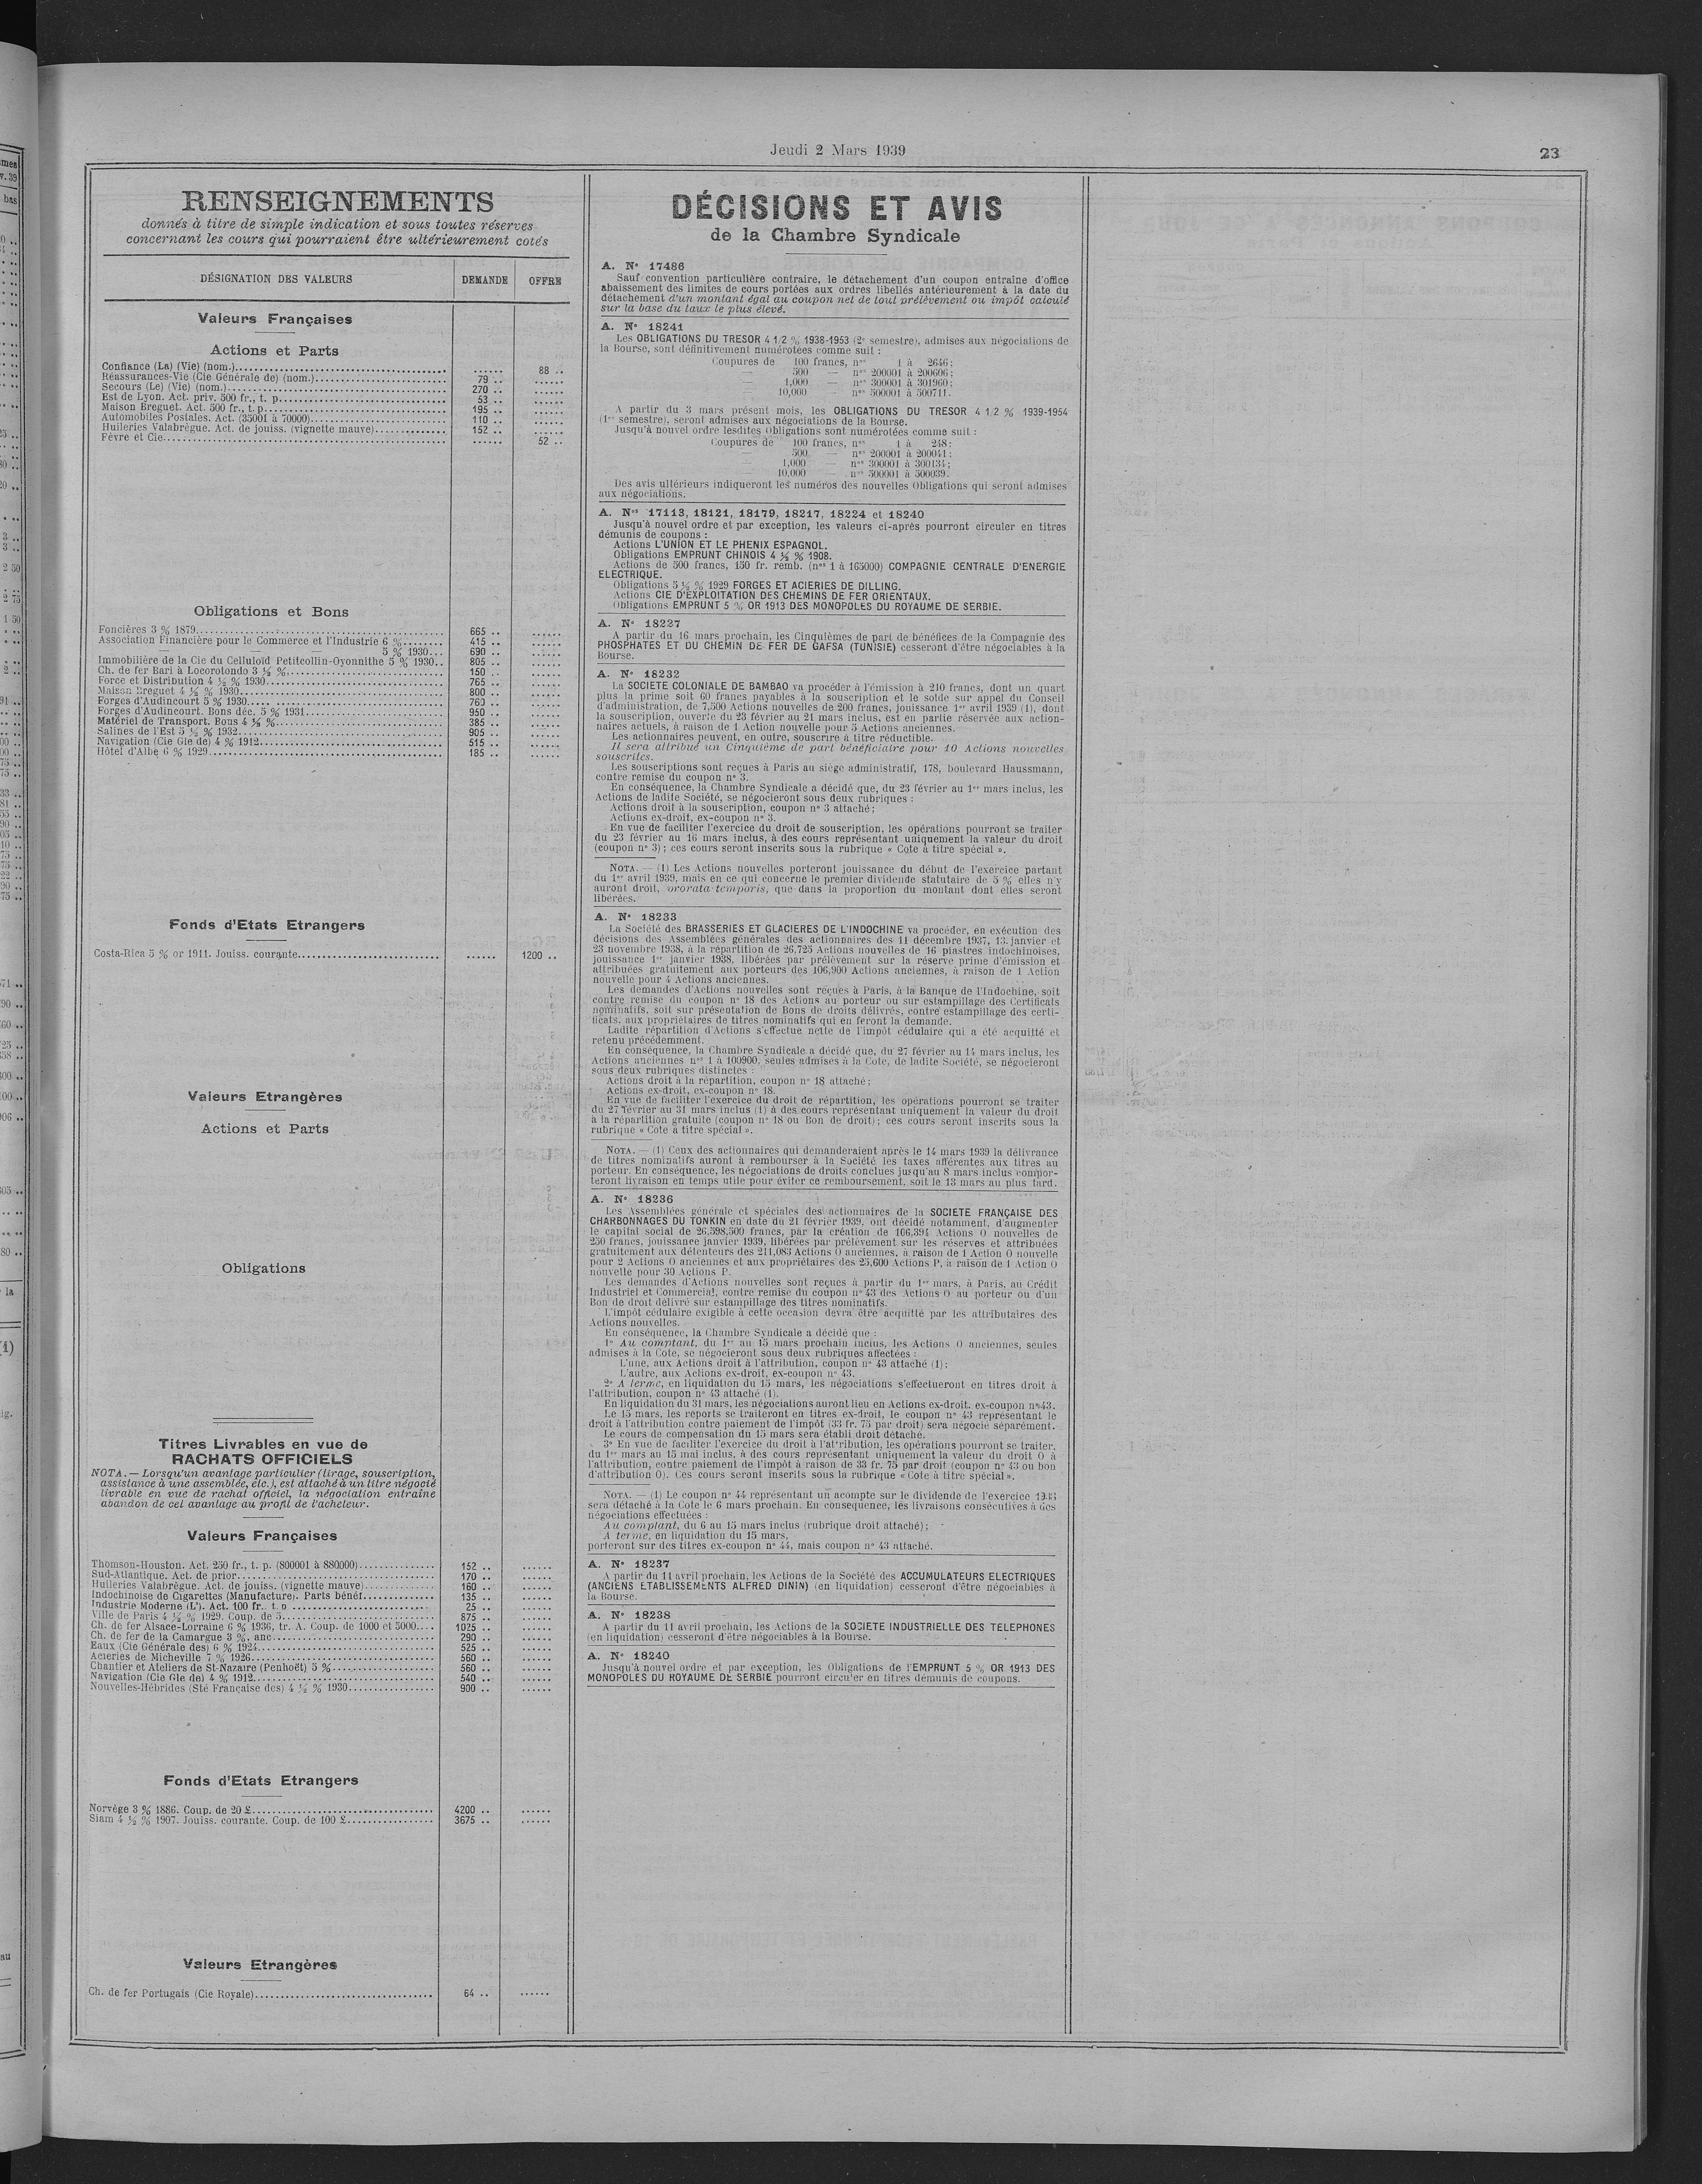 Jeudi 2 Mars 1939
23
RENSEIGNEMENTS
donnés à titre de simple indication et sous toutes réserves
concernant les cours qui pourraient être ultérieurement cotés
DÉSIGNATION DES VALEURS DEMANDE OFFRE
Valeurs Françaises
Actions et Parts
Confiance (La) (Vie) (nom.)... ...... 88 ..
Réassurances-Vie (Cie Générale de) (nom.)... 79 .. ......
Secours (Le) (Vie) (nom.)... 270 .. ......
Est de Lyon. Act. priv. 500 fr., t. p... 53 .. ......
Maison Breguet. Act. 500 fr., t. p... 195 .. ......
Automobiles Postales. Act. (35001 à 70000)... 110 .. ......
Huileries Valabrègue. Act. de jouiss. (vignette mauve)... 152 .. ......
Fèvre et Cie... ...... 52 ..
Obligations et Bons
Foncières 3 % 1879... 665 .. ......
Association Financière pour le Commerce et l'Industrie 6 %... 415 .. ......
— — — 5 % 1930... 690 .. ......
Immobilière de la Cie du Celluloïd Petitcollin-Oyonnithe 5 % 1930.. 805 .. ......
Ch. de fer Bari à Locorotondo 3 ½ %... 150 .. ......
Force et Distribution 4 ½ % 1930... 765 .. ......
Maison Breguet 4 ½ % 1930... 800 .. ......
Forges d'Audincourt 5 % 1930... 760 .. ......
Forges d'Audincourt. Bons déc. 5 % 1931... 950 .. ......
Matériel de Transport. Bons 4 ½ %... 385 .. ......
Salines de l'Est 5 ½ % 1932... 905 .. ......
Navigation (Cie Gle de) 4 % 1912... 515 .. ......
Hôtel d'Albe 6 % 1929... 185 .. ......
Fonds d'Etats Etrangers
Costa-Rica 5 % or 1911. Jouiss. courante... ...... 1200 ..
Valeurs Etrangères
Actions et Parts
Obligations
Titres Livrables en vue de
RACHATS OFFICIELS
NOTA. — Lorsqu'un avantage particulier (tirage, souscription,
assistance à une assemblée, etc.), est attaché à un titre négocié
livrable en vue de rachat officiel, la négociation entraîne
abandon de cet avantage au profit de l'acheteur.
Valeurs Françaises
Thomson-Houston. Act. 250 fr., t. p. (800001 à 880000)... 152 .. ......
Sud-Atlantique. Act. de prior... 170 .. ......
Huileries Valabrègue. Act. de jouiss. (vignette mauve)... 160 .. ......
Indochinoise de Cigarettes (Manufacture). Parts bénéf... 135 .. ......
Industrie Moderne (L'). Act. 100 fr., t. p... 25 .. ......
Ville de Paris 4 ½ % 1929. Coup. de 5... 875 .. ......
Ch. de fer Alsace-Lorraine 6 % 1936, tr. A. Coup. de 1000 et 5000... 1025 .. ......
Ch. de fer de la Camargue 3 %, anc... 290 .. ......
Eaux (Cie Générale des) 6 % 1924... 525 .. ......
Aciéries de Micheville 7 % 1926... 560 .. ......
Chantier et Ateliers de St-Nazaire (Penhoët) 5 %... 560 .. ......
Navigation (Cie Gle de) 4 % 1912... 540 .. ......
Nouvelles-Hébrides (Sté Française des) 4 ½ % 1930... 900 .. ......
Fonds d'Etats Etrangers
Norvège 3 % 1886. Coup. de 20 £... 4200 .. ......
Siam 4 ½ % 1907. Jouiss. courante. Coup. de 100 £... 3675 .. ......
Valeurs Etrangères
Ch. de fer Portugais (Cie Royale)... 64 .. ......
DÉCISIONS ET AVIS
de la Chambre Syndicale
A. N° 17486
Sauf convention particulière contraire, le détachement d'un coupon entraîne d'office
abaissement des limites de cours portées aux ordres libellés antérieurement à la date du
détachement d'un montant égal au coupon net de tout prélèvement ou impôt calculé
sur la base du taux le plus élevé.
A. N° 18241
Les OBLIGATIONS DU TRESOR 4 1/2 % 1938-1953 (2e semestre), admises aux négociations de
la Bourse, sont définitivement numérotées comme suit :
Coupures de 100 francs, nos 1 à 2646;
— 500 — nos 200001 à 200606;
— 1,000 — nos 300001 à 301960;
— 10,000 — nos 500001 à 500711.
A partir du 3 mars présent mois, les OBLIGATIONS DU TRESOR 4 1/2 % 1939-1954
(1er semestre), seront admises aux négociations de la Bourse.
Jusqu'à nouvel ordre lesdites Obligations sont numérotées comme suit :
Coupures de 100 francs, nos 1 à 248;
— 500 — nos 200001 à 200041;
— 1,000 — nos 300001 à 300134;
— 10,000 — nos 500001 à 500039.
Des avis ultérieurs indiqueront les numéros des nouvelles Obligations qui seront admises
aux négociations.
A. Nos 17113, 18121, 18179, 18217, 18224 et 18240
Jusqu'à nouvel ordre et par exception, les valeurs ci-après pourront circuler en titres
démunis de coupons :
Actions L'UNION ET LE PHENIX ESPAGNOL.
Obligations EMPRUNT CHINOIS 4 ½ % 1908.
Actions de 500 francs, 150 fr. remb. (nos 1 à 165000) COMPAGNIE CENTRALE D'ENERGIE
ELECTRIQUE.
Obligations 5 ½ % 1929 FORGES ET ACIERIES DE DILLING.
Actions CIE D'EXPLOITATION DES CHEMINS DE FER ORIENTAUX.
Obligations EMPRUNT 5 % OR 1913 DES MONOPOLES DU ROYAUME DE SERBIE.
A. N° 18227
A partir du 16 mars prochain, les Cinquièmes de part de bénéfices de la Compagnie des
PHOSPHATES ET DU CHEMIN DE FER DE GAFSA (TUNISIE) cesseront d'être négociables à la
Bourse.
A. N° 18232
La SOCIETE COLONIALE DE BAMBAO va procéder à l'émission à 210 francs, dont un quart
plus la prime soit 60 francs payables à la souscription et le solde sur appel du Conseil
d'administration, de 7,500 Actions nouvelles de 200 francs, jouissance 1er avril 1939 (1), dont
la souscription, ouverte du 23 février au 21 mars inclus, est en partie réservée aux action-
naires actuels, à raison de 1 Action nouvelle pour 5 Actions anciennes.
Les actionnaires peuvent, en outre, souscrire à titre réductible.
Il sera attribué un Cinquième de part bénéficiaire pour 10 Actions nouvelles
souscrites.
Les souscriptions sont reçues à Paris au siège administratif, 178, boulevard Haussmann,
contre remise du coupon n° 3.
En conséquence, la Chambre Syndicale a décidé que, du 23 février au 1er mars inclus, les
Actions de ladite Société, se négocieront sous deux rubriques :
Actions droit à la souscription, coupon n° 3 attaché;
Actions ex-droit, ex-coupon n° 3.
En vue de faciliter l'exercice du droit de souscription, les opérations pourront se traiter
du 23 février au 16 mars inclus, à des cours représentant uniquement la valeur du droit
(coupon n° 3); ces cours seront inscrits sous la rubrique « Cote à titre spécial ».
NOTA. — (1) Les Actions nouvelles porteront jouissance du début de l'exercice partant
du 1er avril 1939, mais en ce qui concerne le premier dividende statutaire de 5 % elles n'y
auront droit, prorata temporis, que dans la proportion du montant dont elles seront
libérées.
A. N° 18233
La Société des BRASSERIES ET GLACIERES DE L'INDOCHINE va procéder, en exécution des
décisions des Assemblées générales des actionnaires des 11 décembre 1937, 13 janvier et
23 novembre 1938, à la répartition de 26,725 Actions nouvelles de 16 piastres indochinoises,
jouissance 1er janvier 1938, libérées par prélèvement sur la réserve prime d'émission et
attribuées gratuitement aux porteurs des 106,900 Actions anciennes, à raison de 1 Action
nouvelle pour 4 Actions anciennes.
Les demandes d'Actions nouvelles sont reçues à Paris, à la Banque de l'Indochine, soit
contre remise du coupon n° 18 des Actions au porteur ou sur estampillage des Certificats
nominatifs, soit sur présentation de Bons de droits délivrés, contre estampillage des certi-
ficats, aux propriétaires de titres nominatifs qui en feront la demande.
Ladite répartition d'Actions s'effectue nette de l'impôt cédulaire qui a été acquitté et
retenu précédemment.
En conséquence, la Chambre Syndicale a décidé que, du 27 février au 14 mars inclus, les
Actions anciennes nos 1 à 100900, seules admises à la Cote, de ladite Société, se négocieront
sous deux rubriques distinctes :
Actions droit à la répartition, coupon n° 18 attaché;
Actions ex-droit, ex-coupon n° 18.
En vue de faciliter l'exercice du droit de répartition, les opérations pourront se traiter
du 27 février au 31 mars inclus (1) à des cours représentant uniquement la valeur du droit
à la répartition gratuite (coupon n° 18 ou Bon de droit); ces cours seront inscrits sous la
rubrique « Cote à titre spécial ».
NOTA. — (1) Ceux des actionnaires qui demanderaient après le 14 mars 1939 la délivrance
de titres nominatifs auront à rembourser à la Société les taxes afférentes aux titres au
porteur. En conséquence, les négociations de droits conclues jusqu'au 8 mars inclus compor-
teront livraison en temps utile pour éviter ce remboursement, soit le 13 mars au plus tard.
A. N° 18236
Les Assemblées générale et spéciales des actionnaires de la SOCIETE FRANÇAISE DES
CHARBONNAGES DU TONKIN en date du 21 février 1939, ont décidé notamment, d'augmenter
le capital social de 26,598,500 francs, par la création de 106,394 Actions O nouvelles de
250 francs, jouissance janvier 1939, libérées par prélèvement sur les réserves et attribuées
gratuitement aux détenteurs des 211,083 Actions O anciennes, à raison de 1 Action O nouvelle
pour 2 Actions O anciennes et aux propriétaires des 25,600 Actions P, à raison de 1 Action O
nouvelle pour 30 Actions P.
Les demandes d'Actions nouvelles sont reçues à partir du 1er mars, à Paris, au Crédit
Industriel et Commercial, contre remise du coupon n° 43 des Actions O au porteur ou d'un
Bon de droit délivré sur estampillage des titres nominatifs.
L'impôt cédulaire exigible à cette occasion devra être acquitté par les attributaires des
Actions nouvelles.
En conséquence, la Chambre Syndicale a décidé que :
1° Au comptant, du 1er au 15 mars prochain inclus, les Actions O anciennes, seules
admises à la Cote, se négocieront sous deux rubriques affectées :
L'une, aux Actions droit à l'attribution, coupon n° 43 attaché (1);
L'autre, aux Actions ex-droit, ex-coupon n° 43.
2° A terme, en liquidation du 15 mars, les négociations s'effectueront en titres droit à
l'attribution, coupon n° 43 attaché (1).
En liquidation du 31 mars, les négociations auront lieu en Actions ex-droit, ex-coupon n° 43.
Le 15 mars, les reports se traiteront en titres ex-droit, le coupon n° 43 représentant le
droit à l'attribution contre paiement de l'impôt (33 fr. 75 par droit) sera négocié séparément.
Le cours de compensation du 15 mars sera établi droit détaché.
3° En vue de faciliter l'exercice du droit à l'attribution, les opérations pourront se traiter,
du 1er mars au 15 mai inclus, à des cours représentant uniquement la valeur du droit O à
l'attribution, contre paiement de l'impôt à raison de 33 fr. 75 par droit (coupon n° 43 ou bon
d'attribution O). Ces cours seront inscrits sous la rubrique « Cote à titre spécial ».
NOTA. — (1) Le coupon n° 44 représentant un acompte sur le dividende de l'exercice
sera détaché à la Cote le 6 mars prochain. En conséquence, les livraisons consécutives à des
négociations effectuées :
Au comptant, du 6 au 15 mars inclus (rubrique droit attaché);
A terme, en liquidation du 15 mars,
porteront sur des titres ex-coupon n° 44, mais coupon n° 43 attaché.
A. N° 18237
A partir du 11 avril prochain, les Actions de la Société des ACCUMULATEURS ELECTRIQUES
(ANCIENS ETABLISSEMENTS ALFRED DININ) (en liquidation) cesseront d'être négociables à
la Bourse.
A. N° 18238
A partir du 11 avril prochain, les Actions de la SOCIETE INDUSTRIELLE DES TELEPHONES
(en liquidation) cesseront d'être négociables à la Bourse.
A. N° 18240
Jusqu'à nouvel ordre et par exception, les Obligations de l'EMPRUNT 5 % OR 1913 DES
MONOPOLES DU ROYAUME DE SERBIE pourront circuler en titres démunis de coupons.